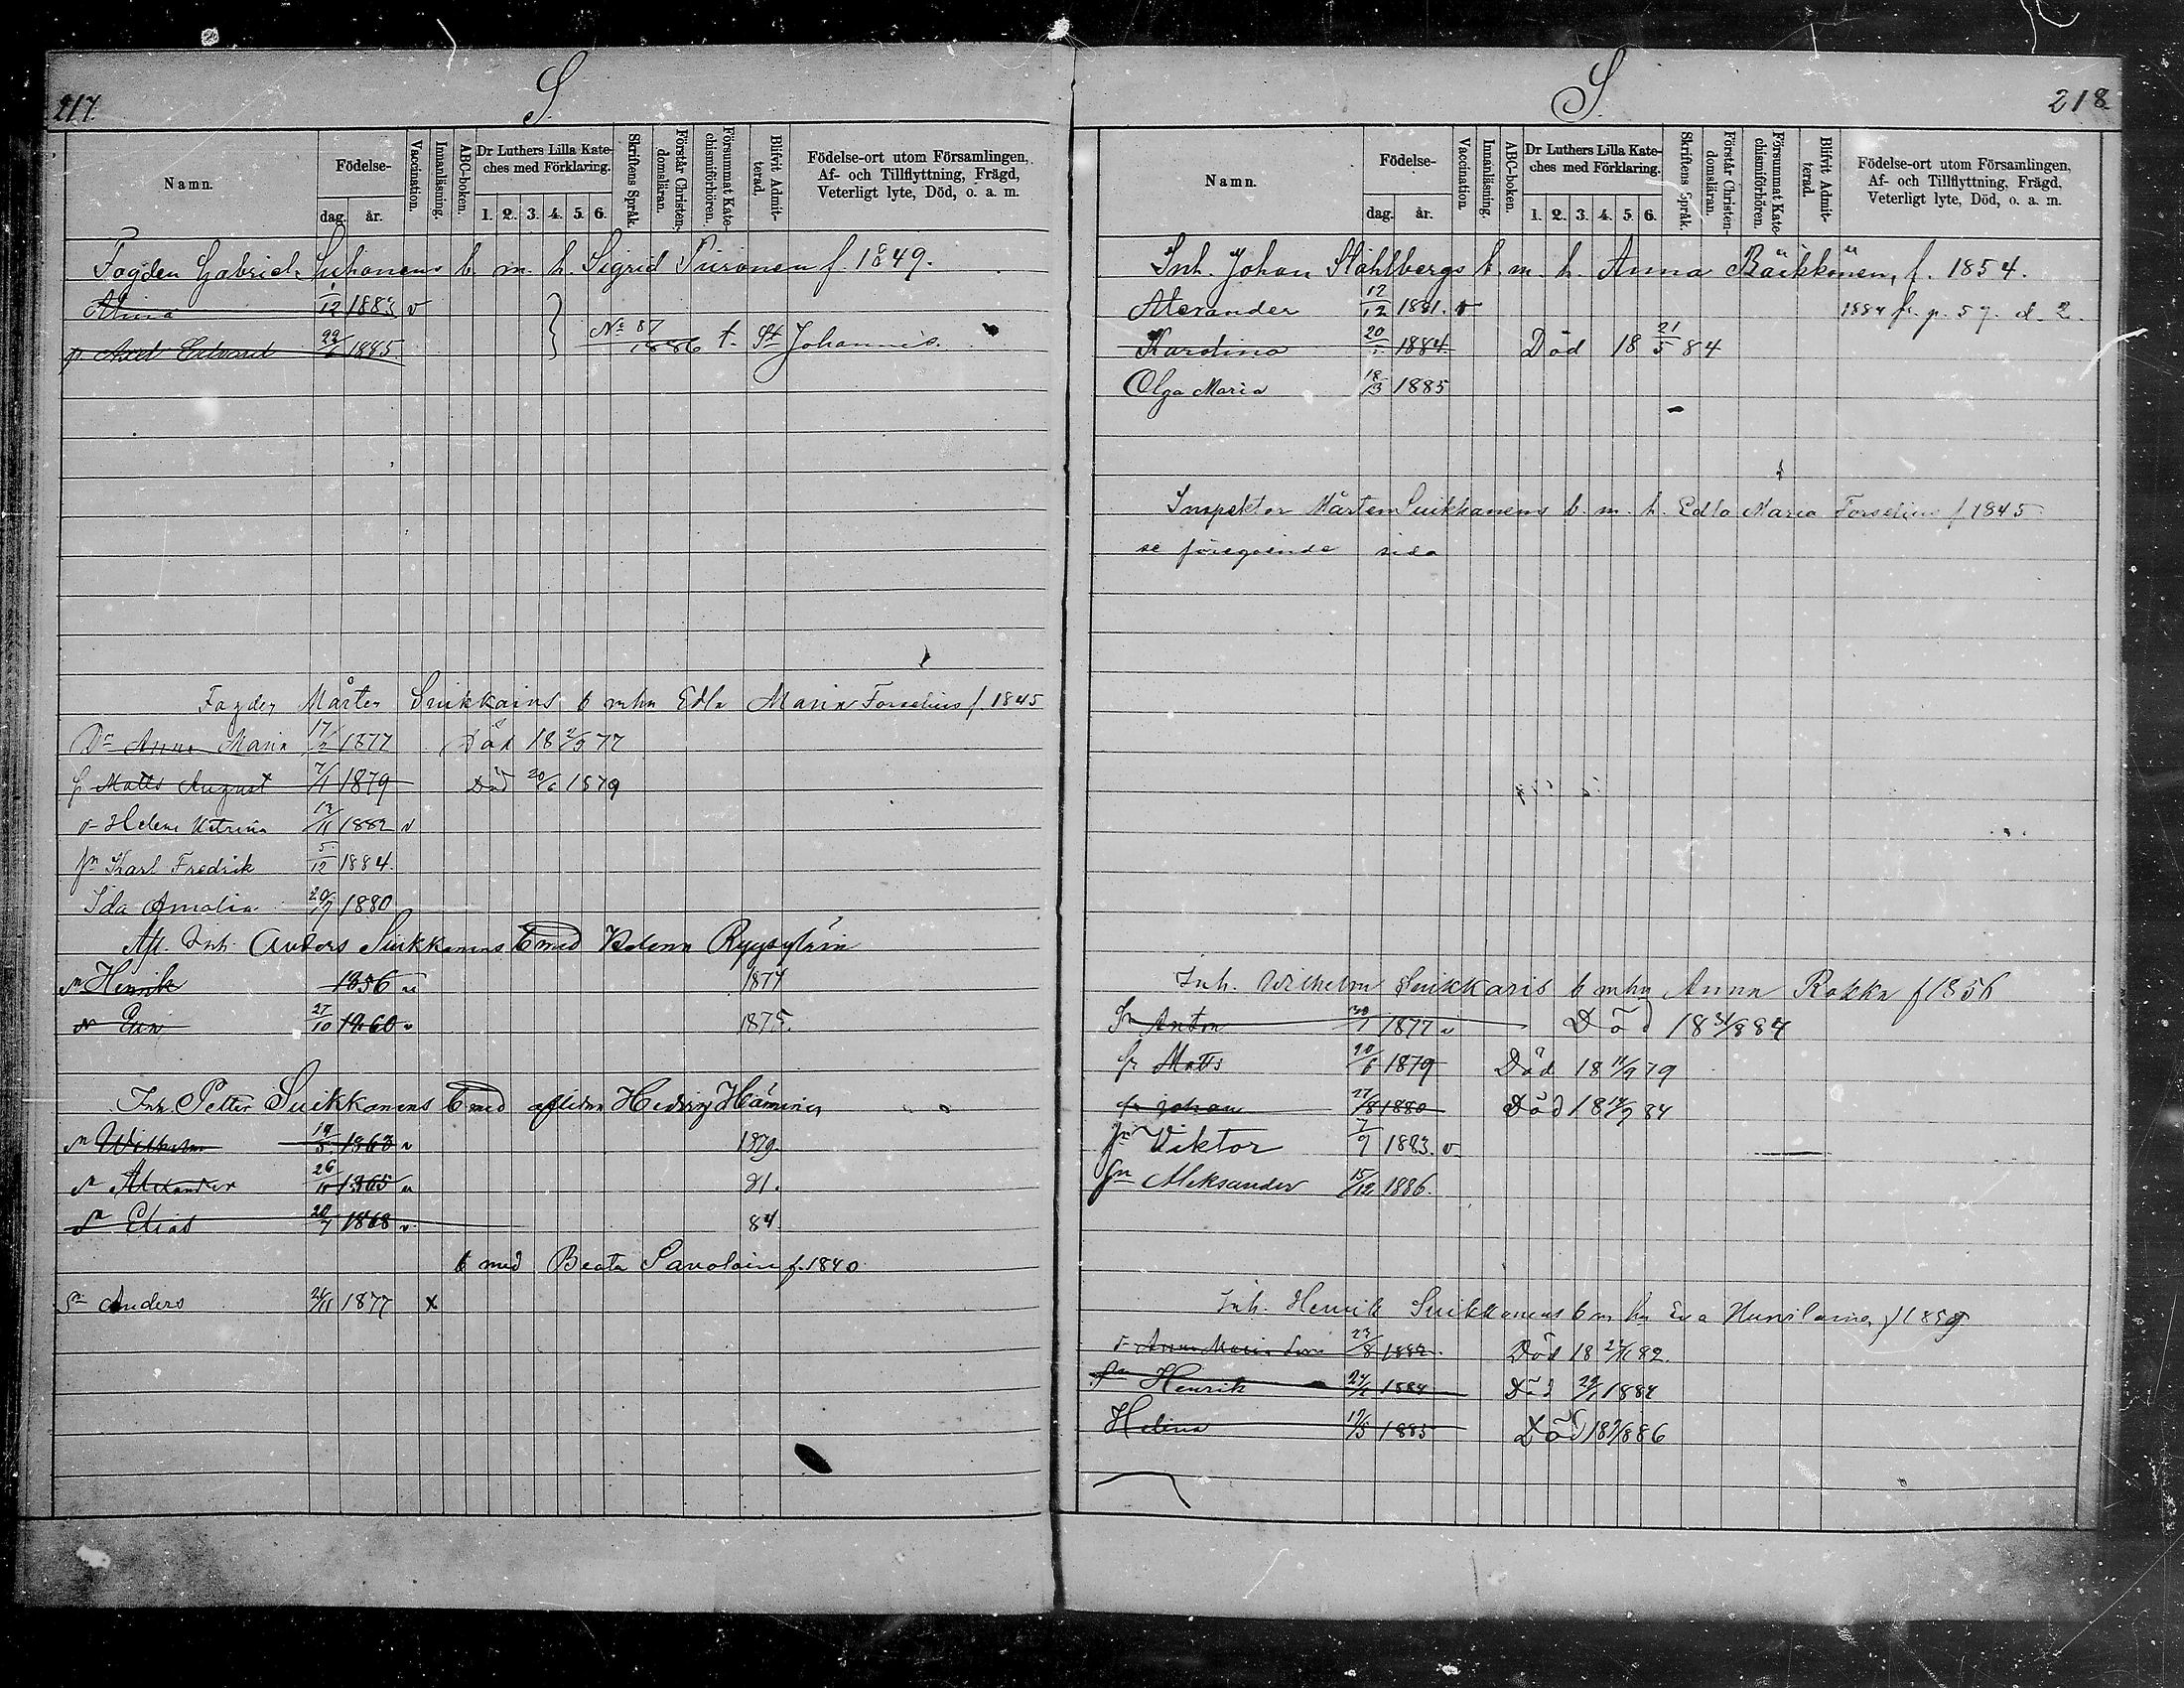 217.
S.
Namn.
Födelse-
dag.
år.
Vaccination.
Innanläsning.
ABC-boken.
Dr Luthers Lilla Kateches med Förklaring.
1. 2. 3. 4. 5. 6.
Skriftens Språk.
Förstår Christendomsläran.
Försummat Katechismiförhören.
Blifvit Admitterad.
Födelse-ort utom Församlingen,
Af- och Tillflyttning, Frägd,
Veterligt lyte, Död, o. a. m.
Fogden Gabriel Suhonens b. m. h. Sigrid Piironen f. 1849.
Alina 1/12 1883 v
Axel Edvard 1885. No 87 1886 t. St Johannis.
Fogden Mårten Suikkains b mhu Edla Maria Forselius f. 1845
Dr Anna Maria 17/2 1877 Död 18 2/9 77
Matts August 7/1 1879 Död 20/6 1879
Helena Katrina 1882 v
Karl Fredrik 5/12 1884.
Ida Amalia 1880
Afl. Inh. Anders Suikkanens b med Helena
Henrik 1856 1874
27/10 1860 v 1875.
Inh. Petter Suikkanens b med aflidna Hedvig
Wilhelm 1863 v 1879.
Alexander 1865 81.
Elias 1868 v 84
b med Beata Savolain f. 1840.
Anders 1877 x
218.
S.
Namn.
Födelse-
dag.
år.
Vaccination.
Innanläsning.
ABC-boken.
Dr Luthers Lilla Kateches med Förklaring.
1. 2. 3. 4. 5. 6.
Skriftens Språk.
Förstår Christendomsläran.
Försummat Katechismiförhören.
Blifvit Admitterad.
Födelse-ort utom Församlingen,
Af- och Tillflyttning, Frägd,
Veterligt lyte, Död, o. a. m.
Inh. Johan Ståhlbergs b. m. h. Anna Bäikkönen, f. 1854.
Alexander 12/12 1881. v 1884 fr. p. 57. d. 2.
Karolina 1884. Död 18 21/5 84
Olga Maria 18/3 1885
Inspektor Mårten Suikkanens b. m. h. Edla Maria Forselius f 1845
se föregående sida
Inh. Wilhelm Suikkaris b mhu Anna Rokka f 1856
Anton 1877 Död 18 31/8 84
Matts 20/6 1879 Död 18 11/9 79
Johan 27/8 1880 Död 18 84
Viktor 7/9 1883. v
Aleksander 15/12 1886.
Inh. Henrik Suikkanens b m hu Eva
Anna Maria 1882. Död 18 82.
Henrik 1884 Död 1884
Helena 17/5 1885 Död 18 86